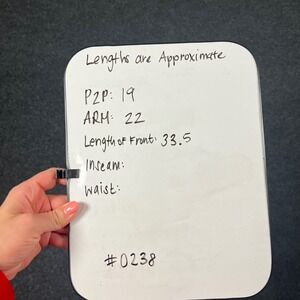 Lengths are Approximate
P2P: 19
ARM: 22
Length of Front: 33.5
Inseam:
Waist:
#0238